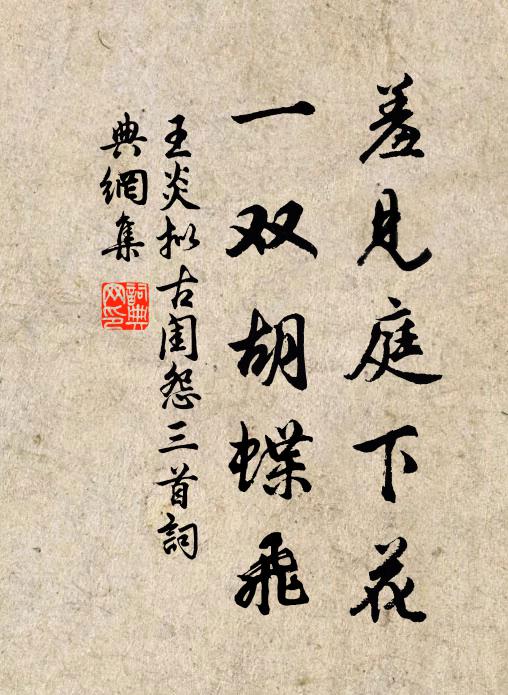 羞见庭下花
一双胡蝶飛
王炎拟古闺怨三首詞
典網集
詞典网印